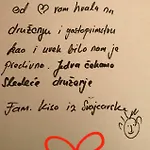 od ♡ vam hvala na
druženju i gostoprimstvu
kao i uvek bilo nam je
predivno. Jedva čekamo
Sledeće druženje
Fam. Kiso iz Švajcarske